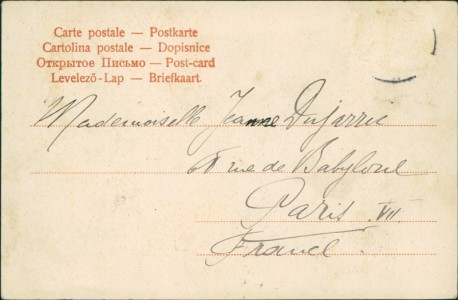 Carte postale — Postkarte
Cartolina postale — Dopisnice
Открытое Письмо — Post-card
Levelező-Lap — Briefkaart
Mademoiselle Jeanne Dujarric
68 rue de Babylone
Paris VII
France